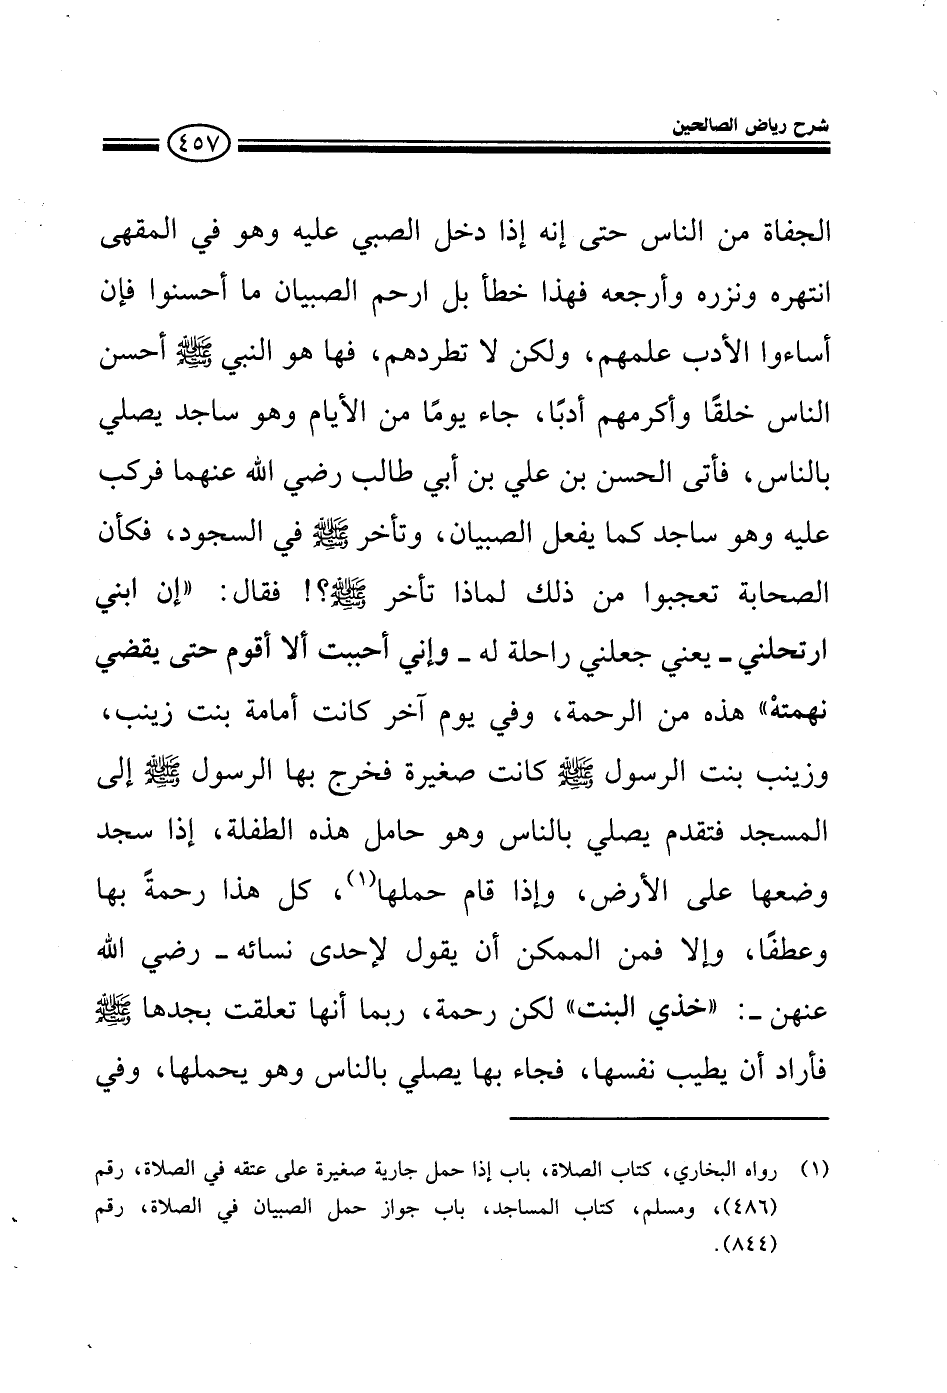 شرح رياض الصالحين
٤٥٧
الجفاة من الناس حتى إنه إذا دخل الصبي عليه وهو في المقهى
انتهره ونزره وأرجعه فهذا خطأ بل ارحم الصبيان ما أحسنوا فإن
أساءوا الأدب علمهم، ولكن لا تطردهم، فها هو النبي ﷺ أحسن
الناس خلقًا وأكرمهم أدبًا، جاء يومًا من الأيام وهو ساجد يصلي
بالناس، فأتى الحسن بن علي بن أبي طالب رضي الله عنهما فركب
عليه وهو ساجد كما يفعل الصبيان، وتأخر ﷺ في السجود، فكأن
الصحابة تعجبوا من ذلك لماذا تأخر ﷺ؟! فقال: «إن ابني
ارتحلني ـ يعني جعلني راحلة له ـ وإني أحببت ألا أقوم حتى يقضي
نهمتهُ» هذه من الرحمة، وفي يوم آخر كانت أمامة بنت زينب،
وزينب بنت الرسول ﷺ كانت صغيرة فخرج بها الرسول ﷺ إلى
المسجد فتقدم يصلي بالناس وهو حامل هذه الطفلة، إذا سجد
وضعها على الأرض، وإذا قام حملها(١)، كل هذا رحمةً بها
وعطفًا، وإلا فمن الممكن أن يقول لإحدى نسائه ـ رضي الله
عنهن ـ: «خذي البنت» لكن رحمة، ربما أنها تعلقت بجدها ﷺ
فأراد أن يطيب نفسها، فجاء بها يصلي بالناس وهو يحملها، وفي
(١) رواه البخاري، كتاب الصلاة، باب إذا حمل جارية صغيرة على عنقه في الصلاة، رقم
(٤٨٦)، ومسلم، كتاب المساجد، باب جواز حمل الصبيان في الصلاة، رقم
(٨٤٤).